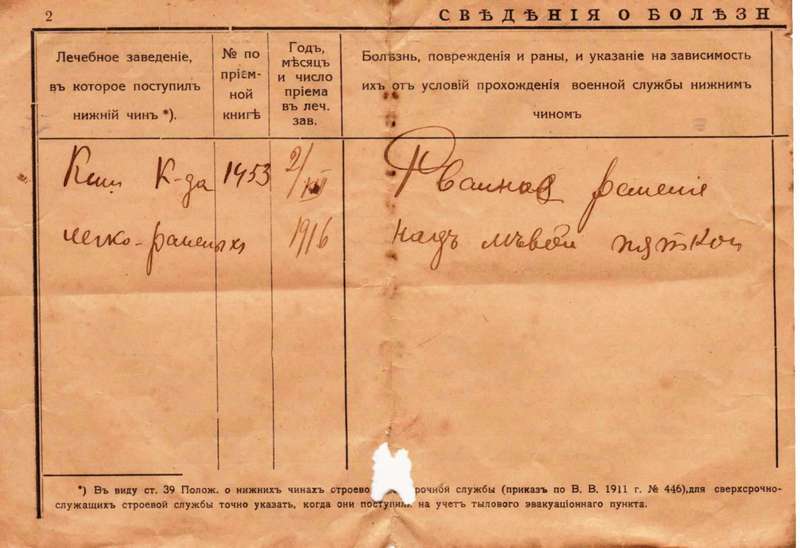 2
СВѢДѢНІЯ О БОЛѢЗН
Лечебное заведеніе,
въ которое поступилъ
нижній чинъ *).
№ по
пріем-
ной
книгѣ
Годъ,
мѣсяцъ
и число
пріема
въ леч.
зав.
Болѣзнь, поврежденія и раны, и указаніе на зависимость
ихъ отъ условій прохожденія военной службы нижнимъ
чиномъ
К-да 1453 2/XII Рваная раненіе
легко-раненыхъ 1916 надъ лѣвой пяткой
*) Въ виду ст. 39 Полож. о нижнихъ чинахъ строево рочной службы (приказъ по В. В. 1911 г. № 446),для сверхсрочно-
служащихъ строевой службы точно указать, когда они поступи на учетъ тылового эвакуаціоннаго пункта.